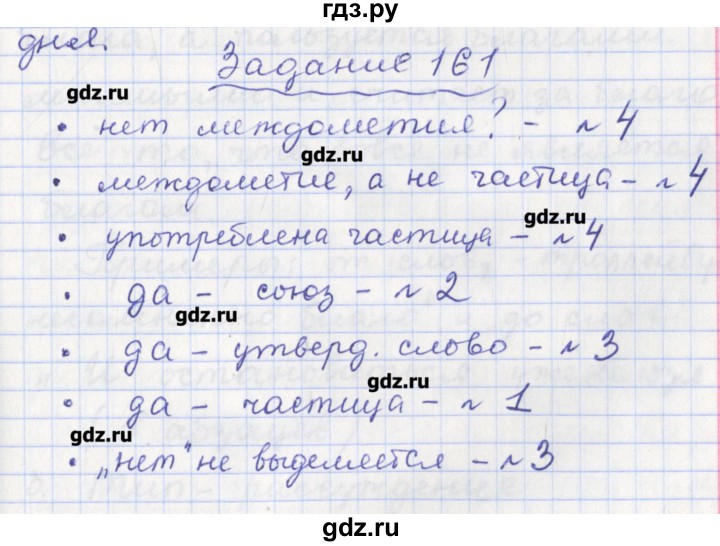 гдз.ру
дня.
Задание 161
gdz.ru
• нет междометия? - № 4
gdz.ru
• междометие, а не частица - № 4
gdz.ru
• употреблена частица - № 4
• да - союз - № 2
gdz.ru
• да - утверд. слово - № 3
gdz.ru
• да - частица - № 1
gdz.ru
• „нет" не выделяется - № 3
gdz.ru
gdz.ru